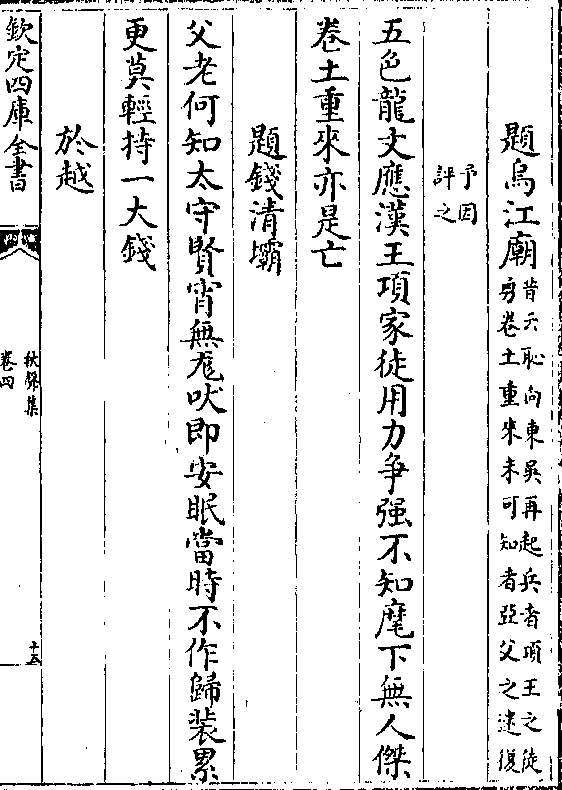 題烏江廟昔云恥向東吳再起兵者項王之徒
勇卷土重來未可知者亞父之速復
予因
評之
五色龍文應漢王項家徒用力爭强不知麾下無人傑
卷土重來亦是亡
題錢清壩
父老何知太守賢宵無尨吠即安眠當時不作歸装累
更莫輕持一大錢
於越
欽定四庫全書
秋聲集
卷四
十五